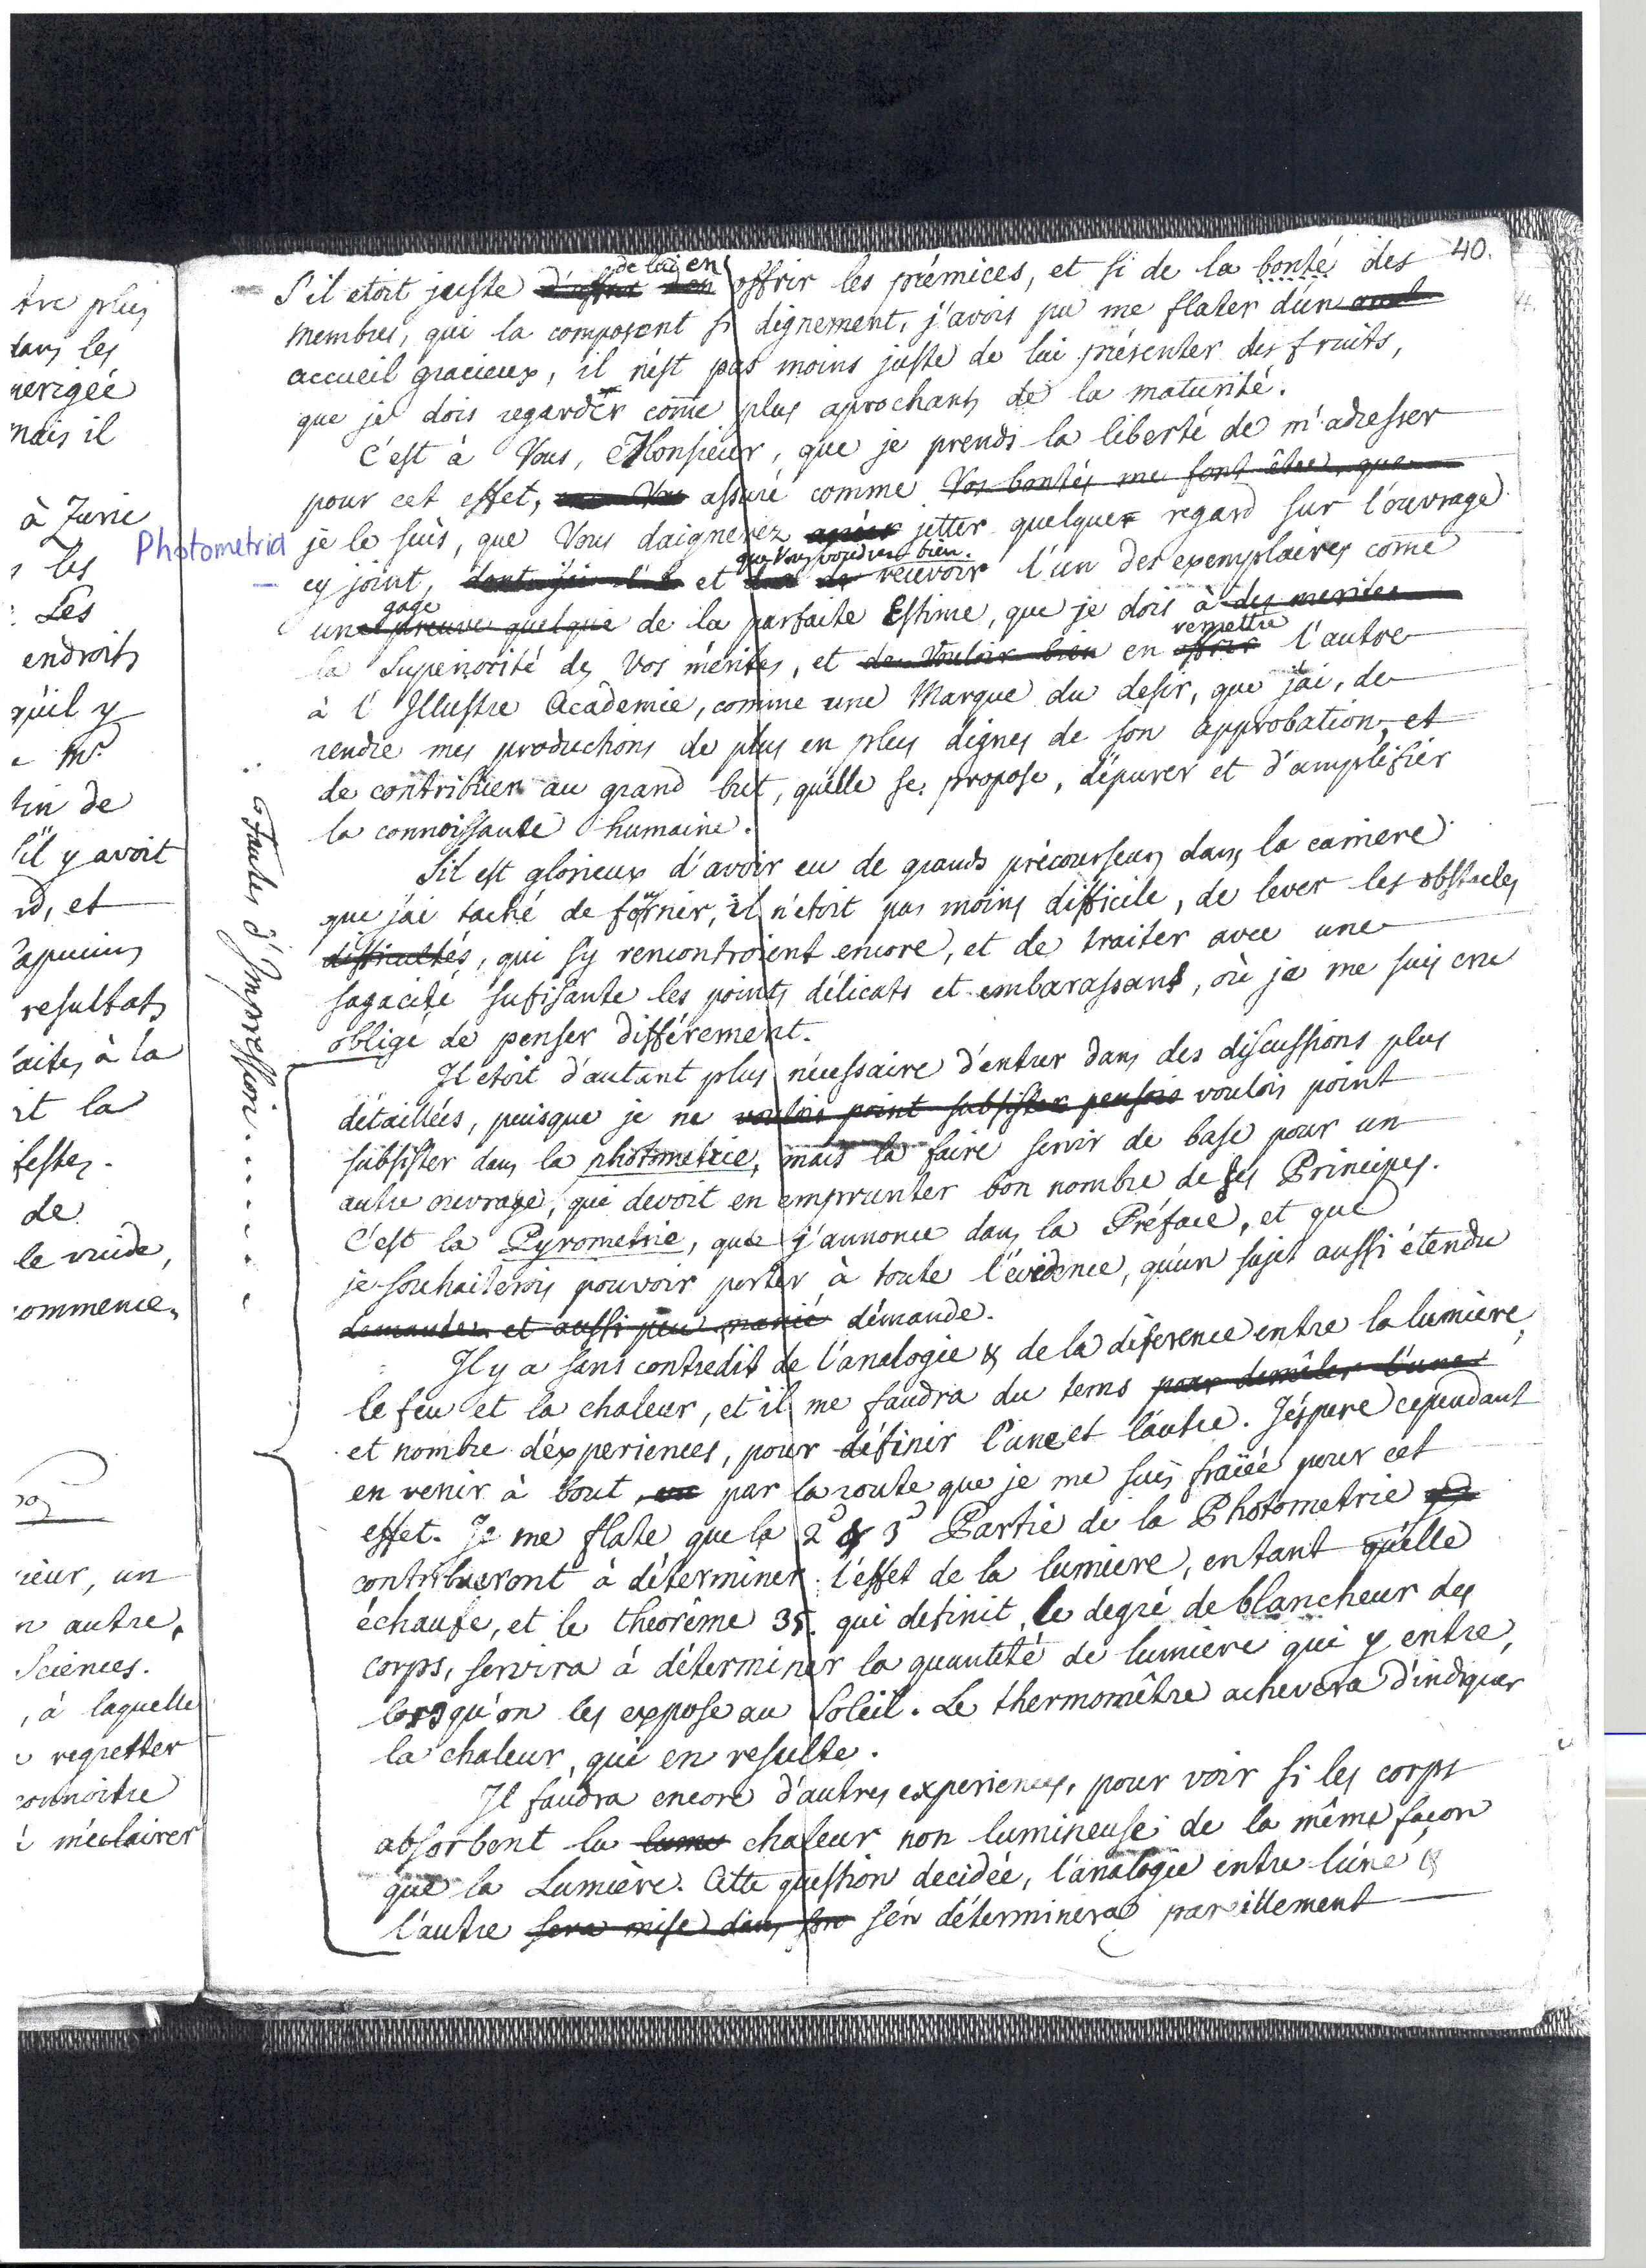 40.
S'il etoit juste de lui en offrir les prémices, et si de la bonté des
membres, qui la composent si dignement, j'avois pu me flater d'un
accueil gracieux, il n'est pas moins juste de lui présenter des fruits,
que je dois regarder come plus aprochants de la maturité.
C'est à Vous, Monsieur, que je prends la liberté de m'adresser
pour cet effet, assuré comme Vos bontés me font être, que
je le suis, que Vous daignerez jetter quelque regard sur l'ouvrage
cy joint, et que Vous voudrez bien recevoir l'un des exemplaires come
un gage preuve quelque de la parfaite Estime, que je dois à des merites
la Superiorité de Vos mérites, et de Vouloir bien en remettre offrir l'autre
à l'Illustre Académie, comme une Marque du desir, que j'ai, de
rendre mes productions de plus en plus dignes de son approbation, et
de contribuer au grand but, qu'elle se propose, d'épurer et d'amplifier
la connoissance humaine.
S'il est glorieux d'avoir eu de grands précourseurs dans la carriere
que j'ai taché de fournir, il n'etoit pas moins difficile, de lever les obstacles
difficultés, qui s'y rencontroient encore, et de traiter avec une
sagacité sufisante les points délicats et embarassants, où je me suis cru
obligé de penser différement.
Il etoit d'autant plus nécessaire d'entrer dans des discussions plus
détaillées, puisque je ne voulois point subsister pensois voulois point
subsister dans la photometrie, mais la faire servir de base pour un
autre ouvrage, qui devoit en emprunter bon nombre de ses Principes.
C'est la Pyrometrie, que j'annonce dans la Préface, et que
je souhaiterois pouvoir porter à toute l'évidence, qu'un sujet aussi étendu
demande. et aussi peu manié démande.
Il y a sans contredit de l'analogie & de la diference entre la lumiere,
le feu et la chaleur, et il me faudra du tems pour demêler l'une
et nombre d'experiences, pour définir l'une et l'autre. J'éspere cependant
en venir à bout par la route que je me suis fraiée pour cet
effet. Je me flate que la 2d & 3d Partie de la Photometrie
contribueront à déterminer l'effet de la lumiere, entant qu'elle
échaufe, et le theorême 35. qui definit le degré de blancheur des
corps, servira à déterminer la quantité de lumiere qui y entre,
lorsqu'on les expose au Soleil. Le thermomêtre achevera d'indiquer
la chaleur, qui en resulte.
Il faudra encore d'autres experiences, pour voir si les corps
absorbent la lume chaleur non lumineuse de la même façon
que la Lumière. Cette question decidée, l'analogie entre l'une &
l'autre sera mise dans son s'en déterminera pareillement
Photometria
Fautes d'Impression
tre plus
dans les
nerigée
mais il
à Zuric
les
Les
endroits
qu'il y
Mr.
tin de
s'il y avoit
rd, et
resultats
faites à la
it la
festes.
de
le vuide,
commence.
rieur, un
n autre.
Sciences.
, à laquelle
regretter
connoitre
m'eclairer